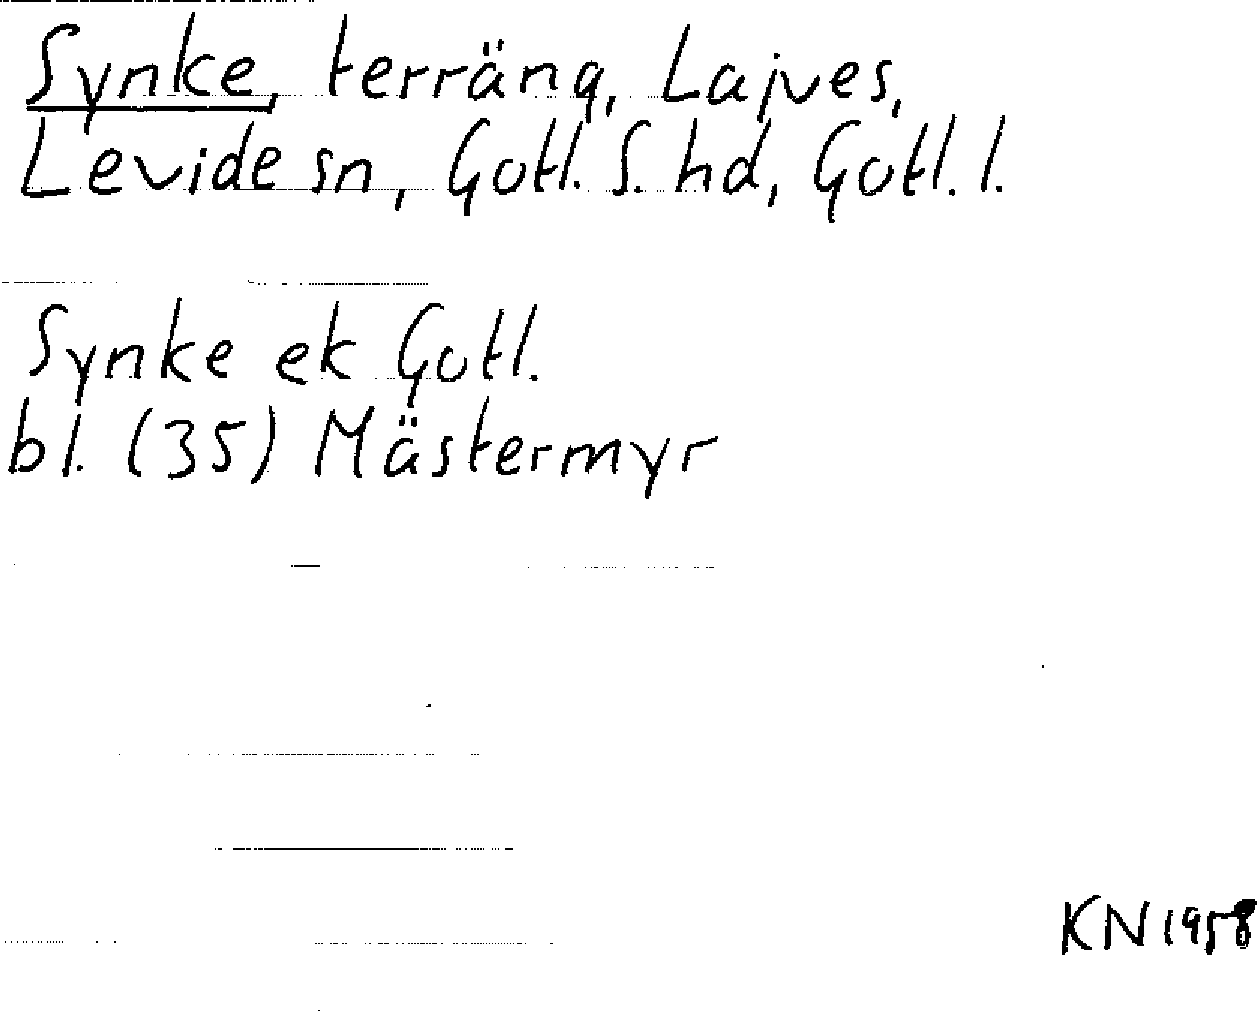 Synke, terräng, Lajves,
Levide sn, Gotl. S. hd, Gotl. l.
Synke ek Gotl.
bl. (35) Mästermyr
KN 1958